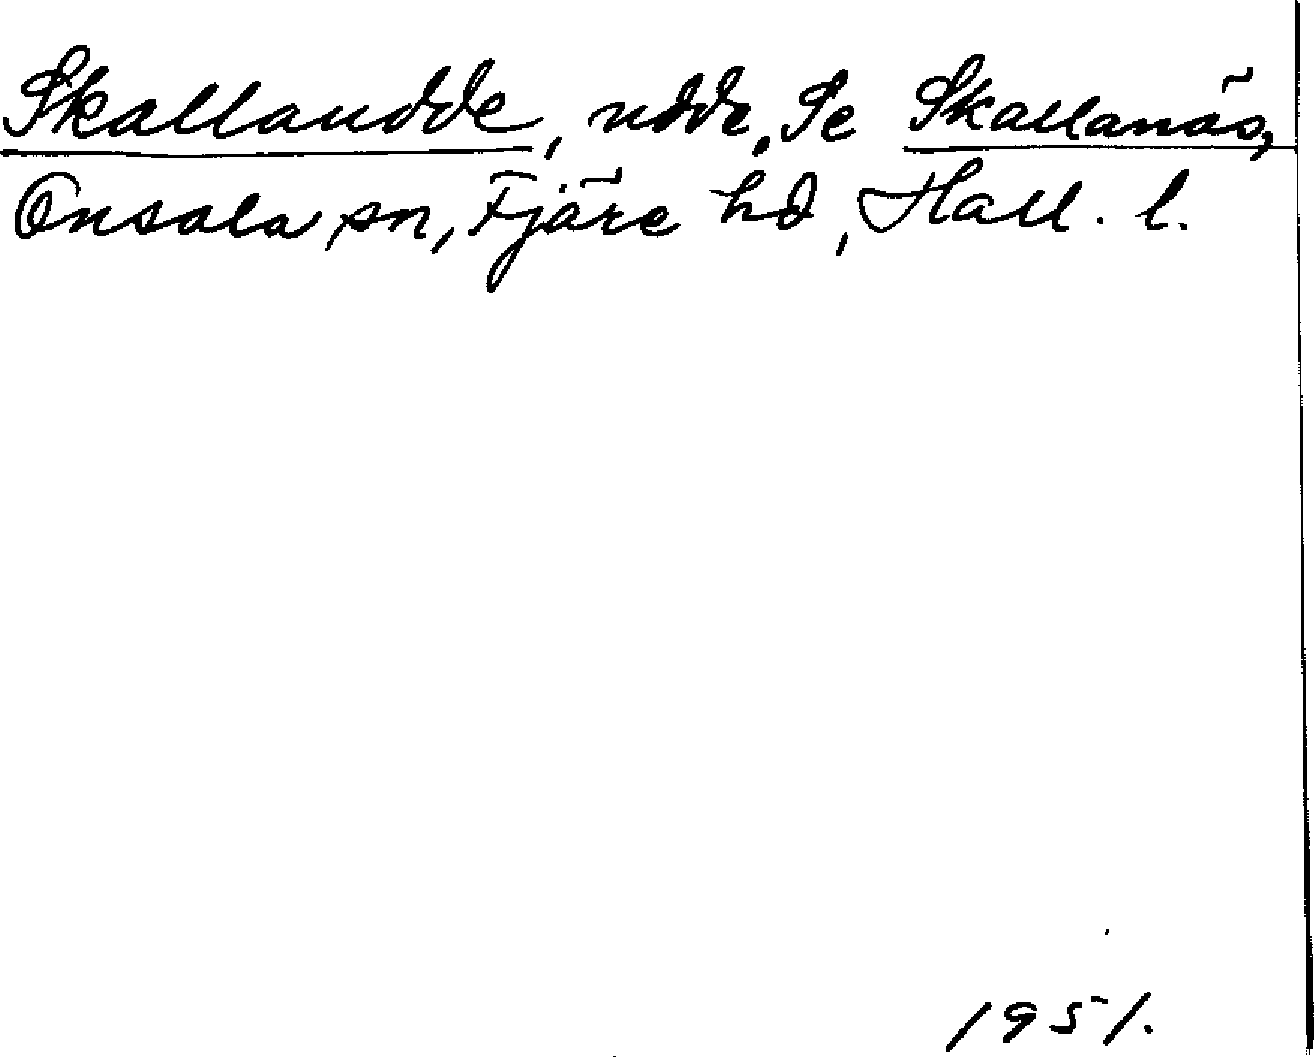 Skallaudde, udde. Se Skallanäs,
Onsala sn, Fjäre hd, Hall. l.
1951.